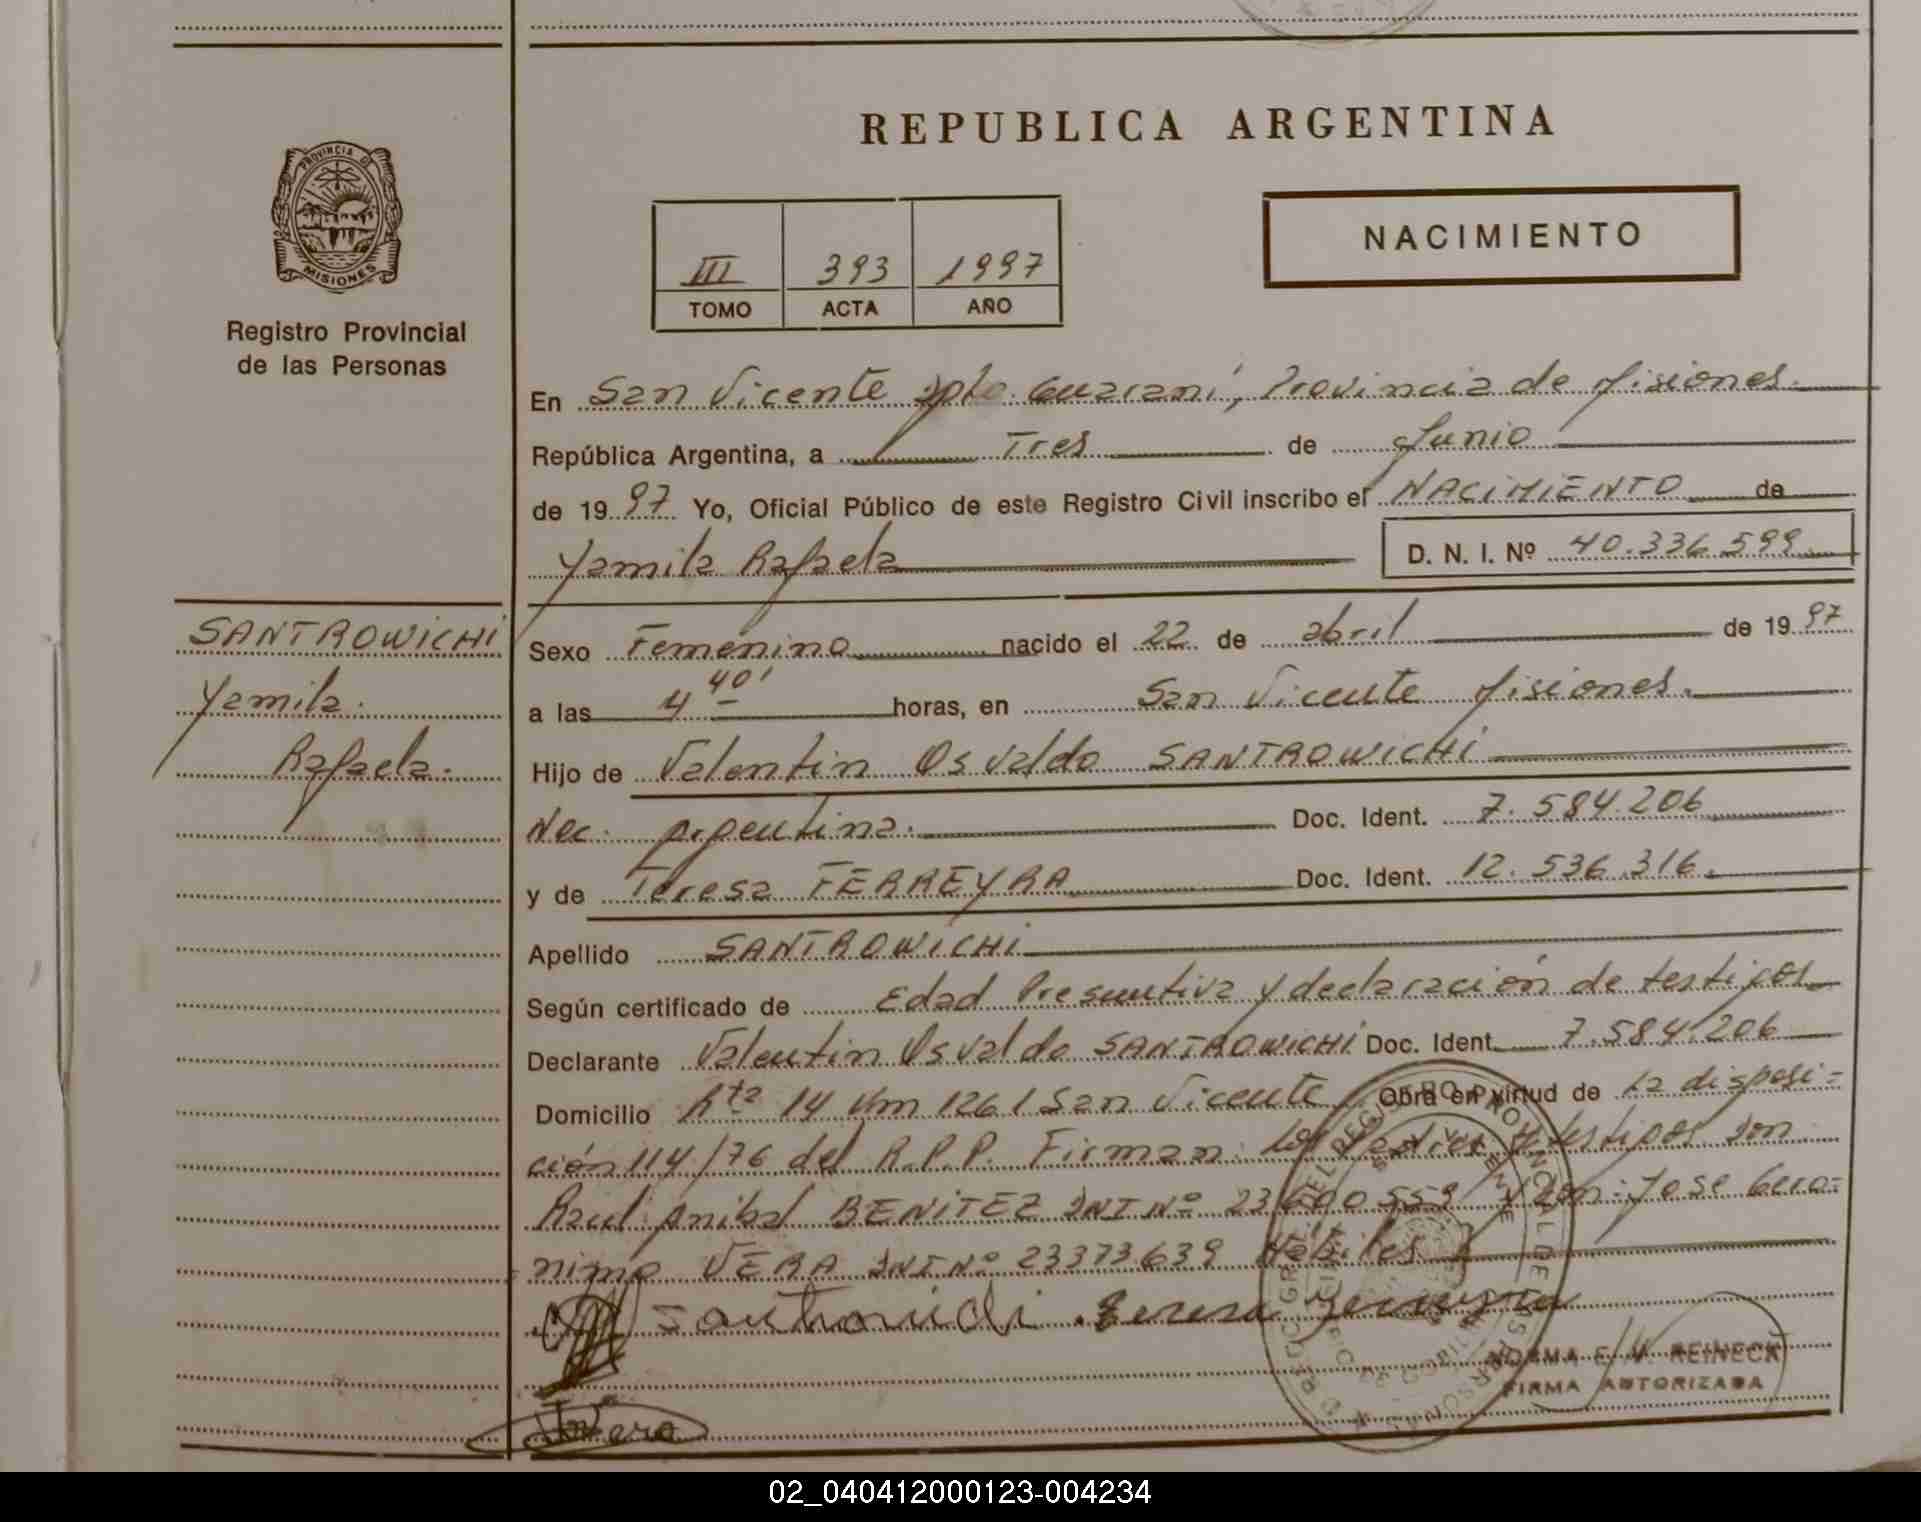 REPUBLICA ARGENTINA
PROVINCIA DE MISIONES
Registro Provincial
de las Personas
III 393 1997
TOMO ACTA AÑO
NACIMIENTO
En San Vicente Dpto. Guaraní, Provincia de Misiones.
República Argentina, a Tres de Junio
de 1997 Yo, Oficial Público de este Registro Civil inscribo el NACIMIENTO de
Yamila Rafaela D. N. I. Nº 40.336.599
SANTROWICHI
Yamila.
Rafaela.
Sexo Femenino nacido el 22 de abril de 1997
a las 4 40' horas, en San Vicente Misiones.
Hijo de Valentin Osvaldo SANTROWICHI
Nac. Argentina. Doc. Ident. 7.584.206
y de Teresa FERREYRA Doc. Ident. 12.536.316.
Apellido SANTROWICHI
Según certificado de Edad Presuntiva y declaración de testigos
Declarante Valentin Osvaldo SANTROWICHI Doc. Ident. 7.584.206
Domicilio Rta 14 Km 1261 San Vicente Obra en virtud de la disposi=
ción 114/76 del R.P.P. Firman: los testigos son
Raul Anibal BENITEZ DNI Nº 23600559 y Don: Jose Gero=
nimo VERA DNI Nº 23373639 Habiles
Santrowichi Teresa Ferreyra
NORMA E. V. REINECK
FIRMA AUTORIZADA
Vera
02_040412000123-004234